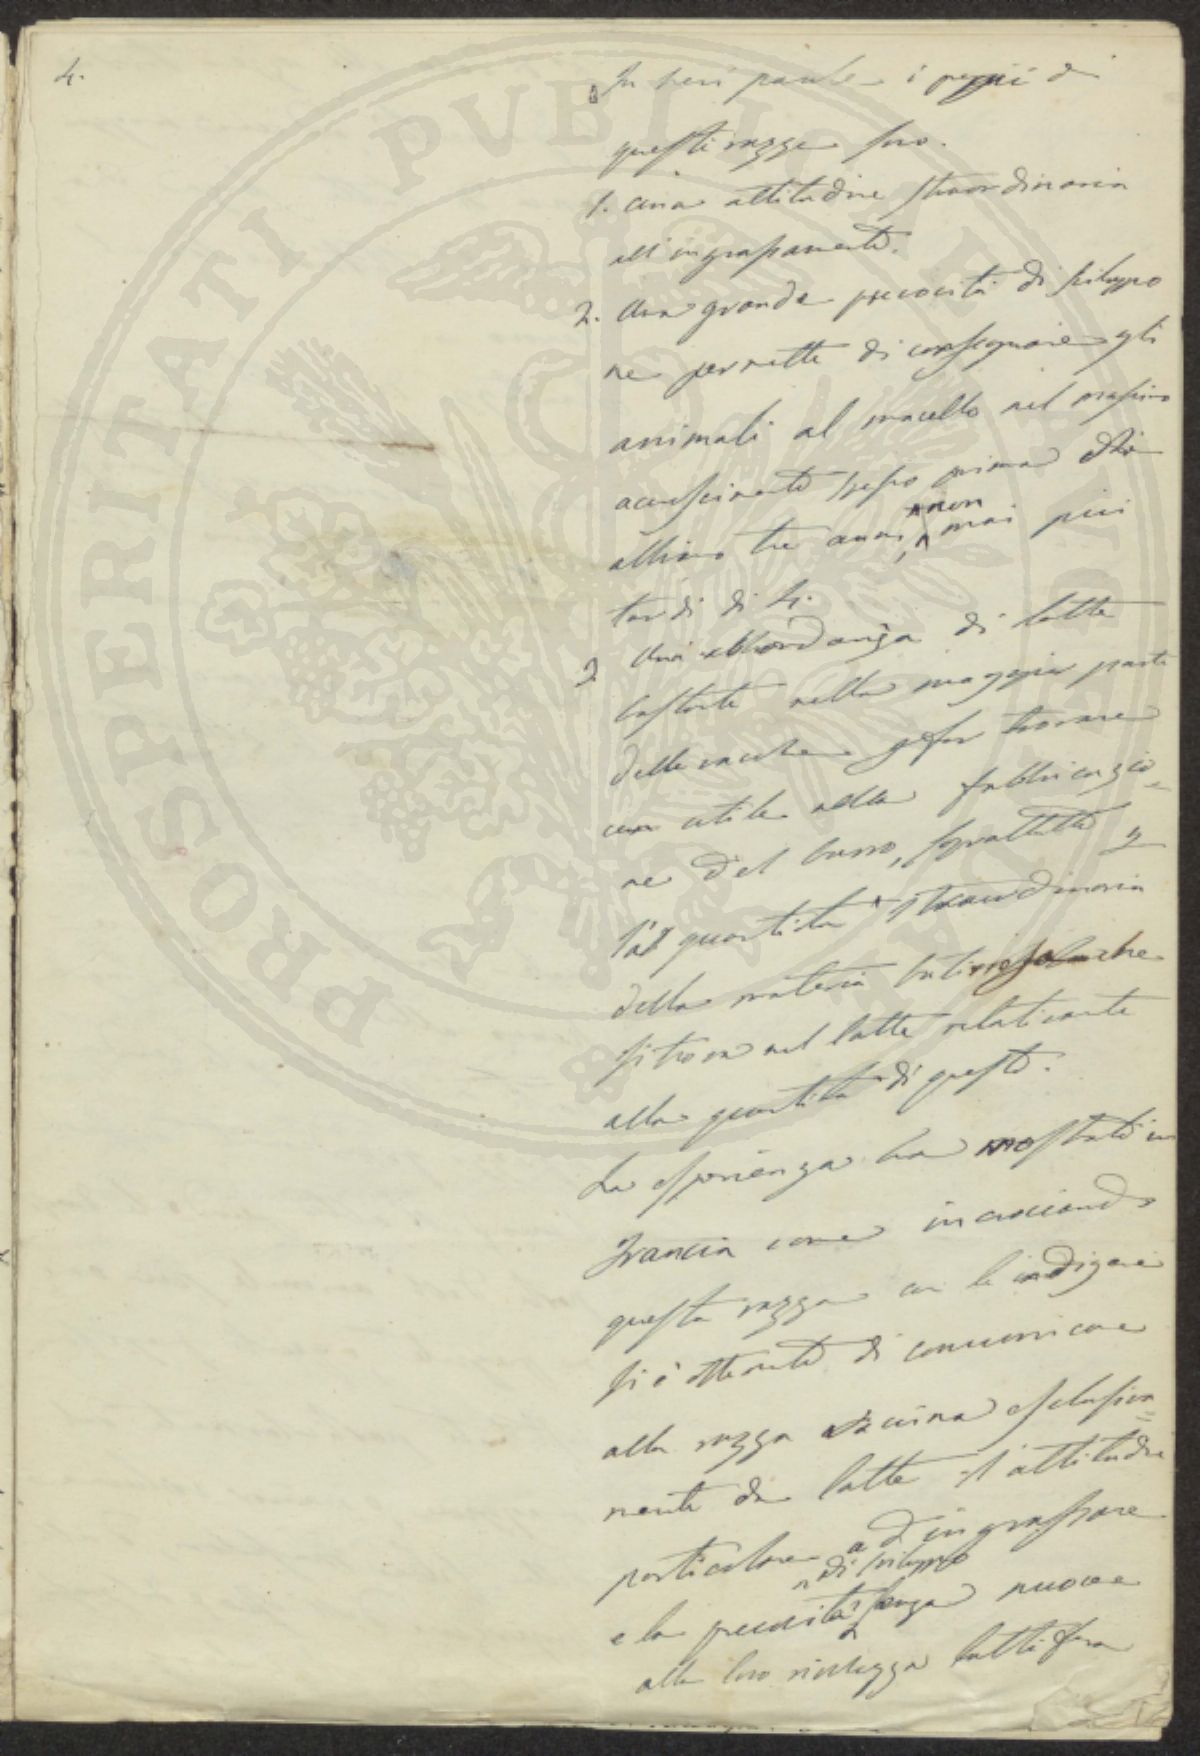 4.
In pari i pregi di
questi razze sono.
1. Una attitudine straordinaria
all'ingrassamento.
2. Una grande precocità di sviluppo
ne permette di consegnare gli
animali al macello nel massimo
accrescimento spesso prima
tre anni, non mai più
tardi di 4.
3 Una abbondanza di latte
nella maggior parte
delle vacche trovare
utile nella fabbricazio=
ne del burro, soprattutto
quantità straordinaria
della materia che
si trova nel latte relativamente
alla quantità di questo.
La esperienza ha mostrato in
Francia come incrociando
questa razza con le indigene
si è ottenuto di comunicare
alla razza esclusiva=
mente da latte l'attitudine
particolare ad ingrassare
e la precocità di sviluppo senza nuocere
alla loro ricchezza lattifera
PROSPERITATI PUBLICAE AUGENDAE